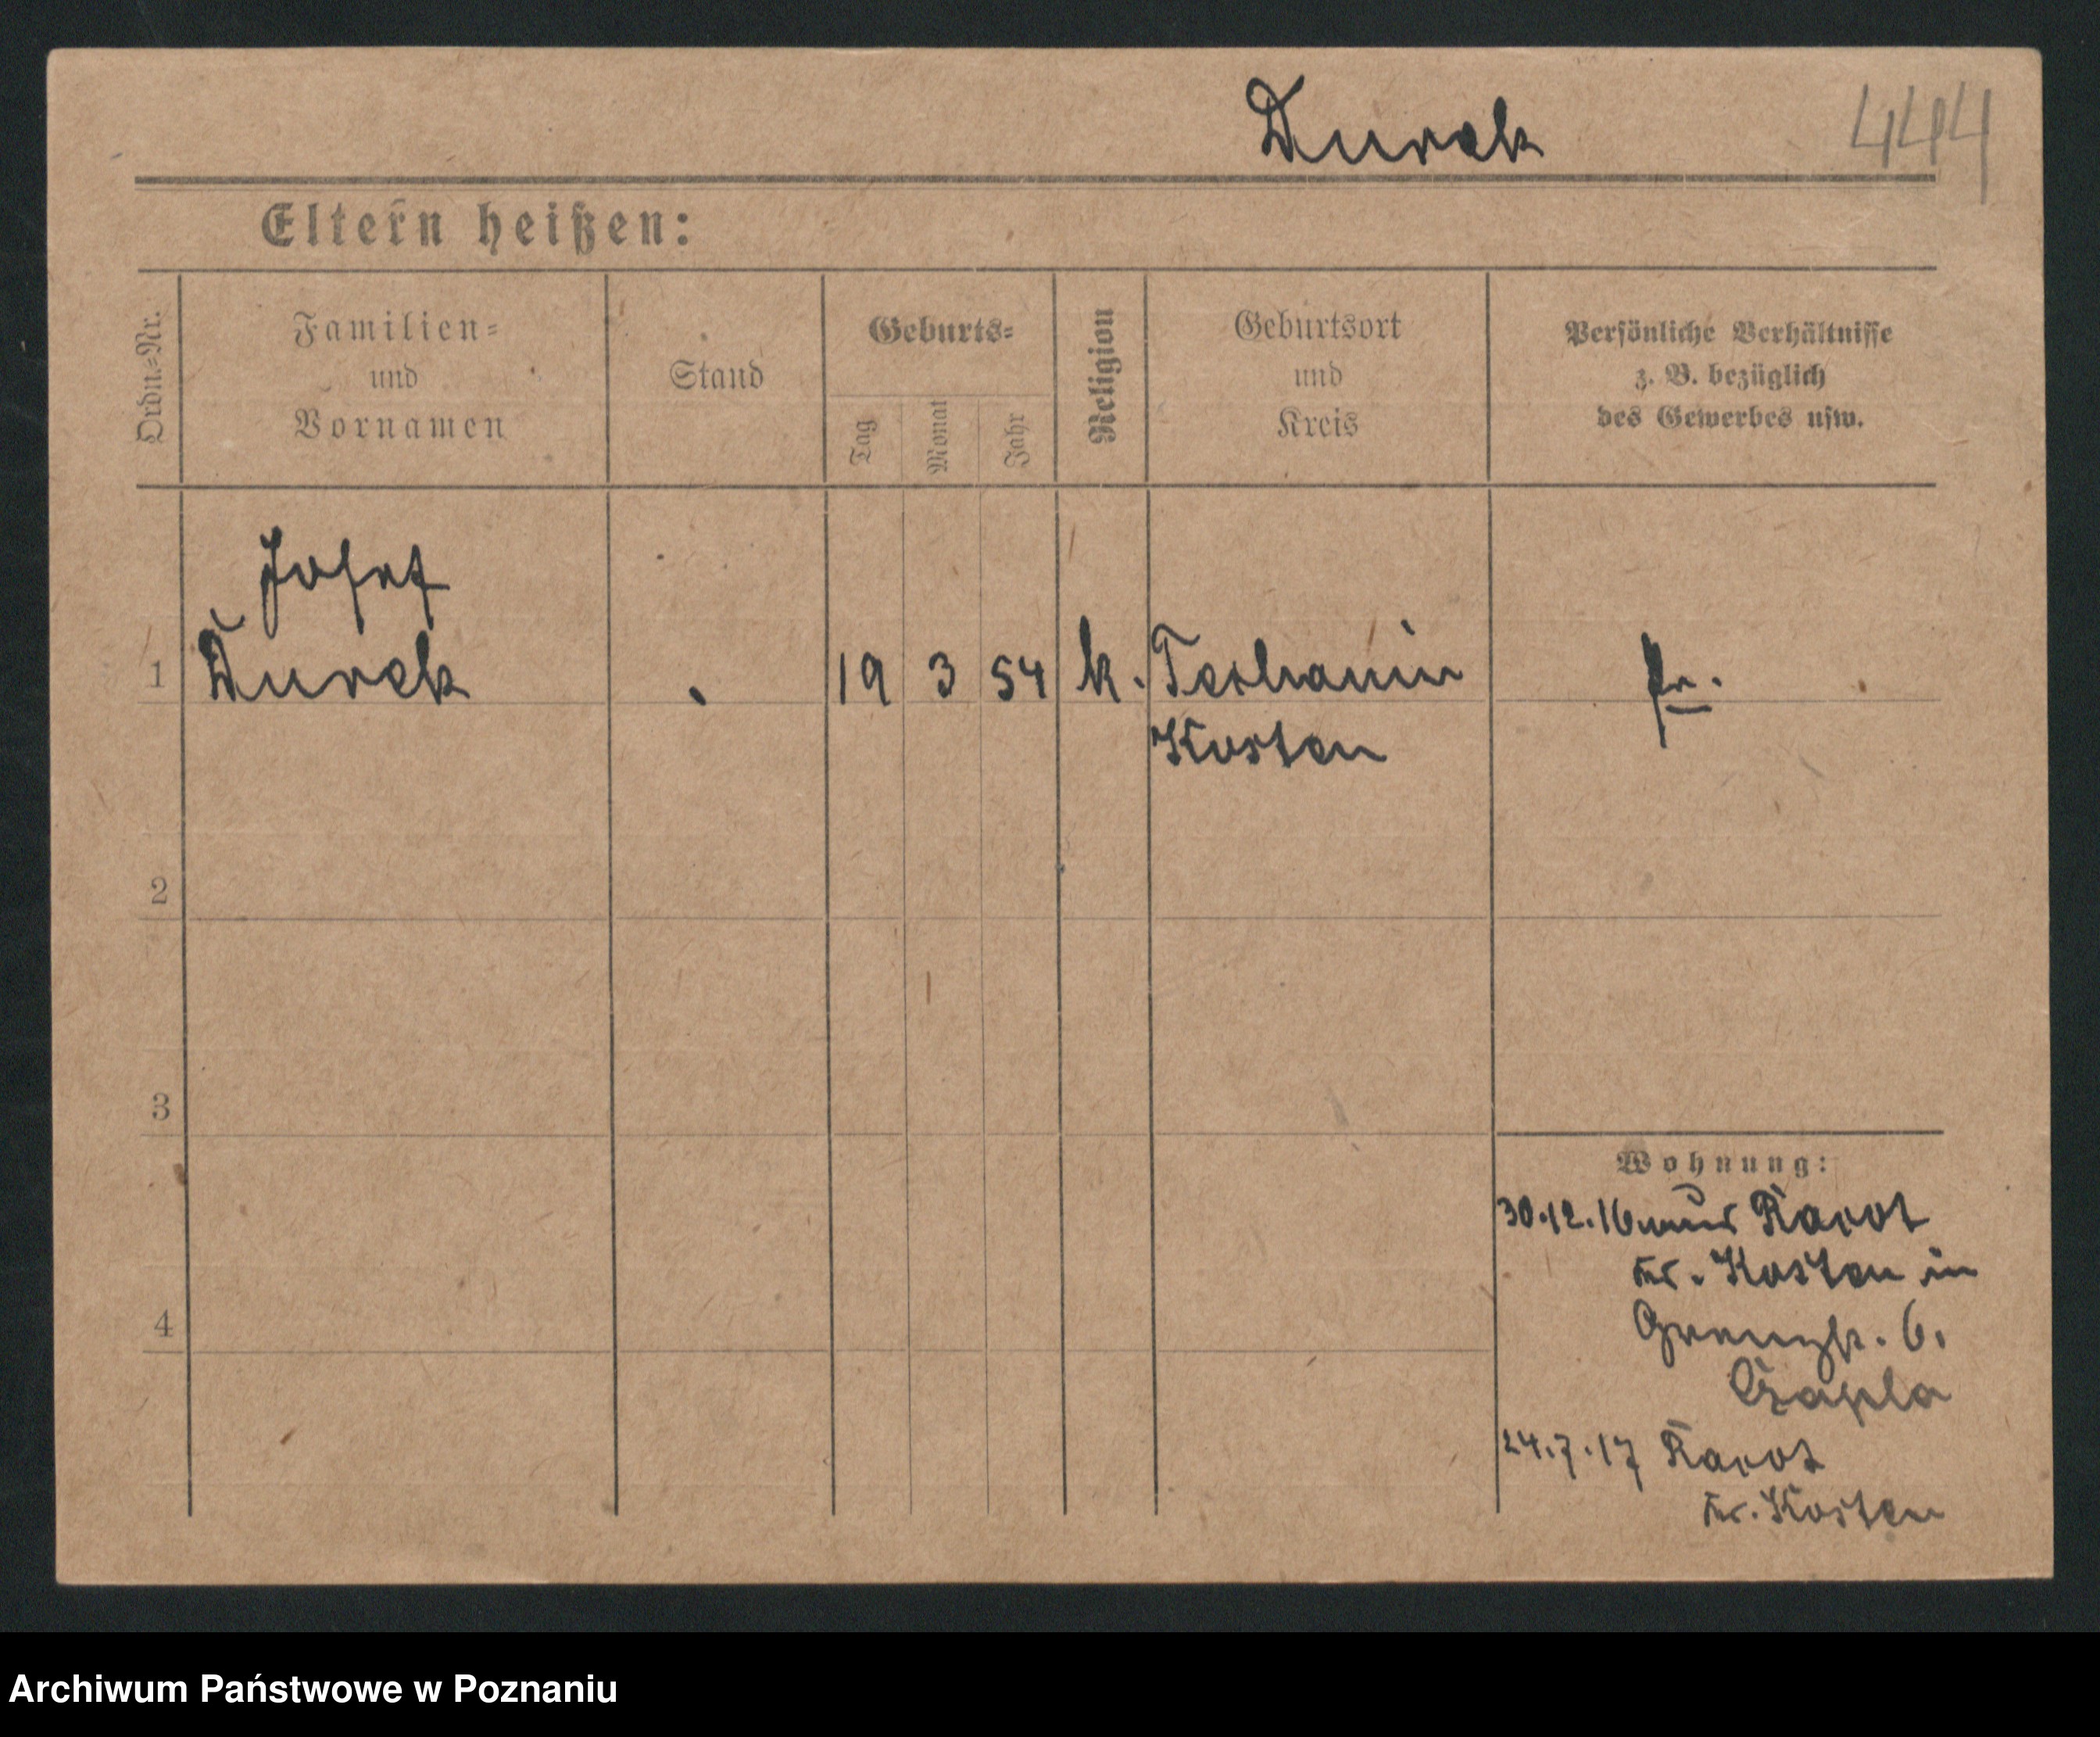 Durek
444
Eltern heißen:
Ordn.=Nr.
Familien=
und
Vornamen
Stand
Geburts=
Tag
Monat
Jahr
Religion
Geburtsort
und
Kreis
Persönliche Verhältnisse
z. B. bezüglich
des Gewerbes usw.
Josef
1 Durek 19 3 54 k.
Kosten
2
3
4
Wohnung:
30.12.16 aus Racot
Kr. Kosten in
Grenzstr. 6.
Czapla
24.7.17 Racot
Kr. Kosten
Archiwum Państwowe w Poznaniu